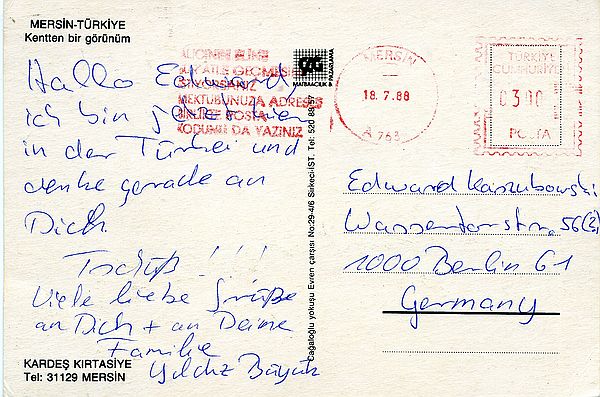 MERSİN-TÜRKİYE
Kentten bir görünüm
Hallo Edward,
ich bin jetzt hier
in der Türkei und
denke gerade an
Dich.
Tschüß!!!
Viele liebe Grüße
an Dich + an Deine
Familie
Yıldız Büyük
KARDEŞ KIRTASİYE
Tel: 31129 MERSİN
MATBAACILIK & PAZARLAMA
Cağaloğlu yokuşu Evren çarşısı No:29-4/6 Sirkeci-İST. Tel: 520 89 57
GEÇMESİNİ
İSTİYORSANIZ
MEKTUBUNUZA ADRES
BİRLİKTE POSTA
KODUNU DA YAZINIZ
MERSİN
18.7.88
A 763
TÜRKİYE
CUMHURİYETİ
0300
POSTA
Edward Kaszubowski
56
1000 Berlin 61
Germany